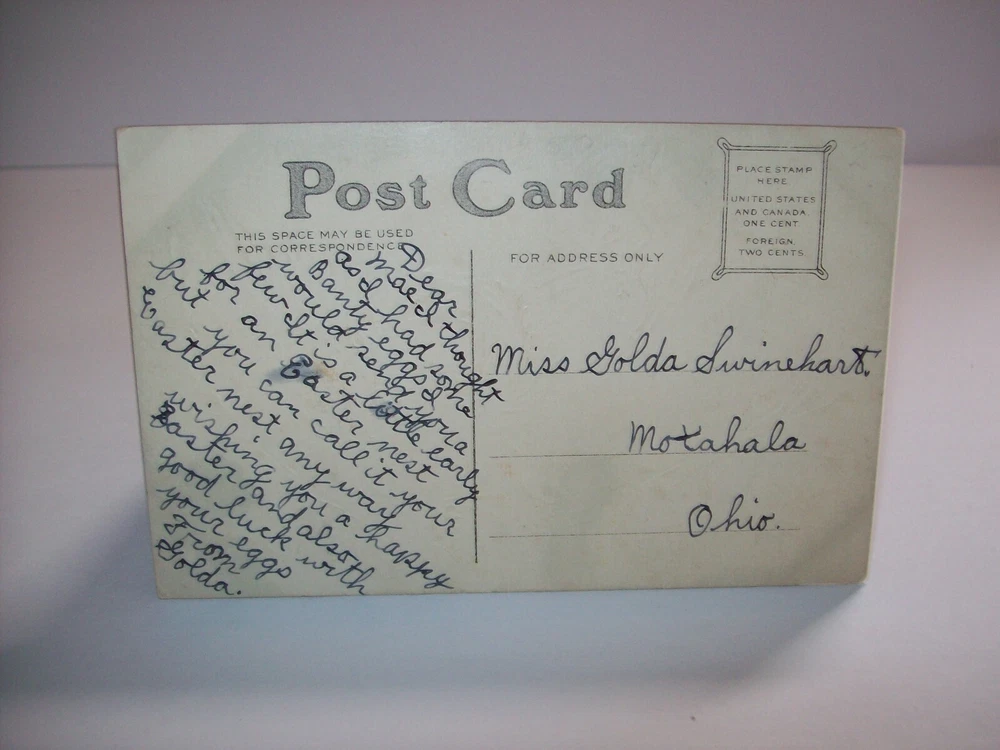 Post Card
THIS SPACE MAY BE USED
FOR CORRESPONDENCE
FOR ADDRESS ONLY
PLACE STAMP
HERE.
UNITED STATES
AND CANADA.
ONE CENT.
FOREIGN.
TWO CENTS.
Dear
Mae I thought
as I had some
Banty eggs I
would send you a
few It is a little early
for an Easter nest
but you can call it your
Easter nest any way
wishing you a happy
Easter and also
good luck with
your eggs
From
Golda.
Miss Golda Swinehart.
Moxahala
Ohio.